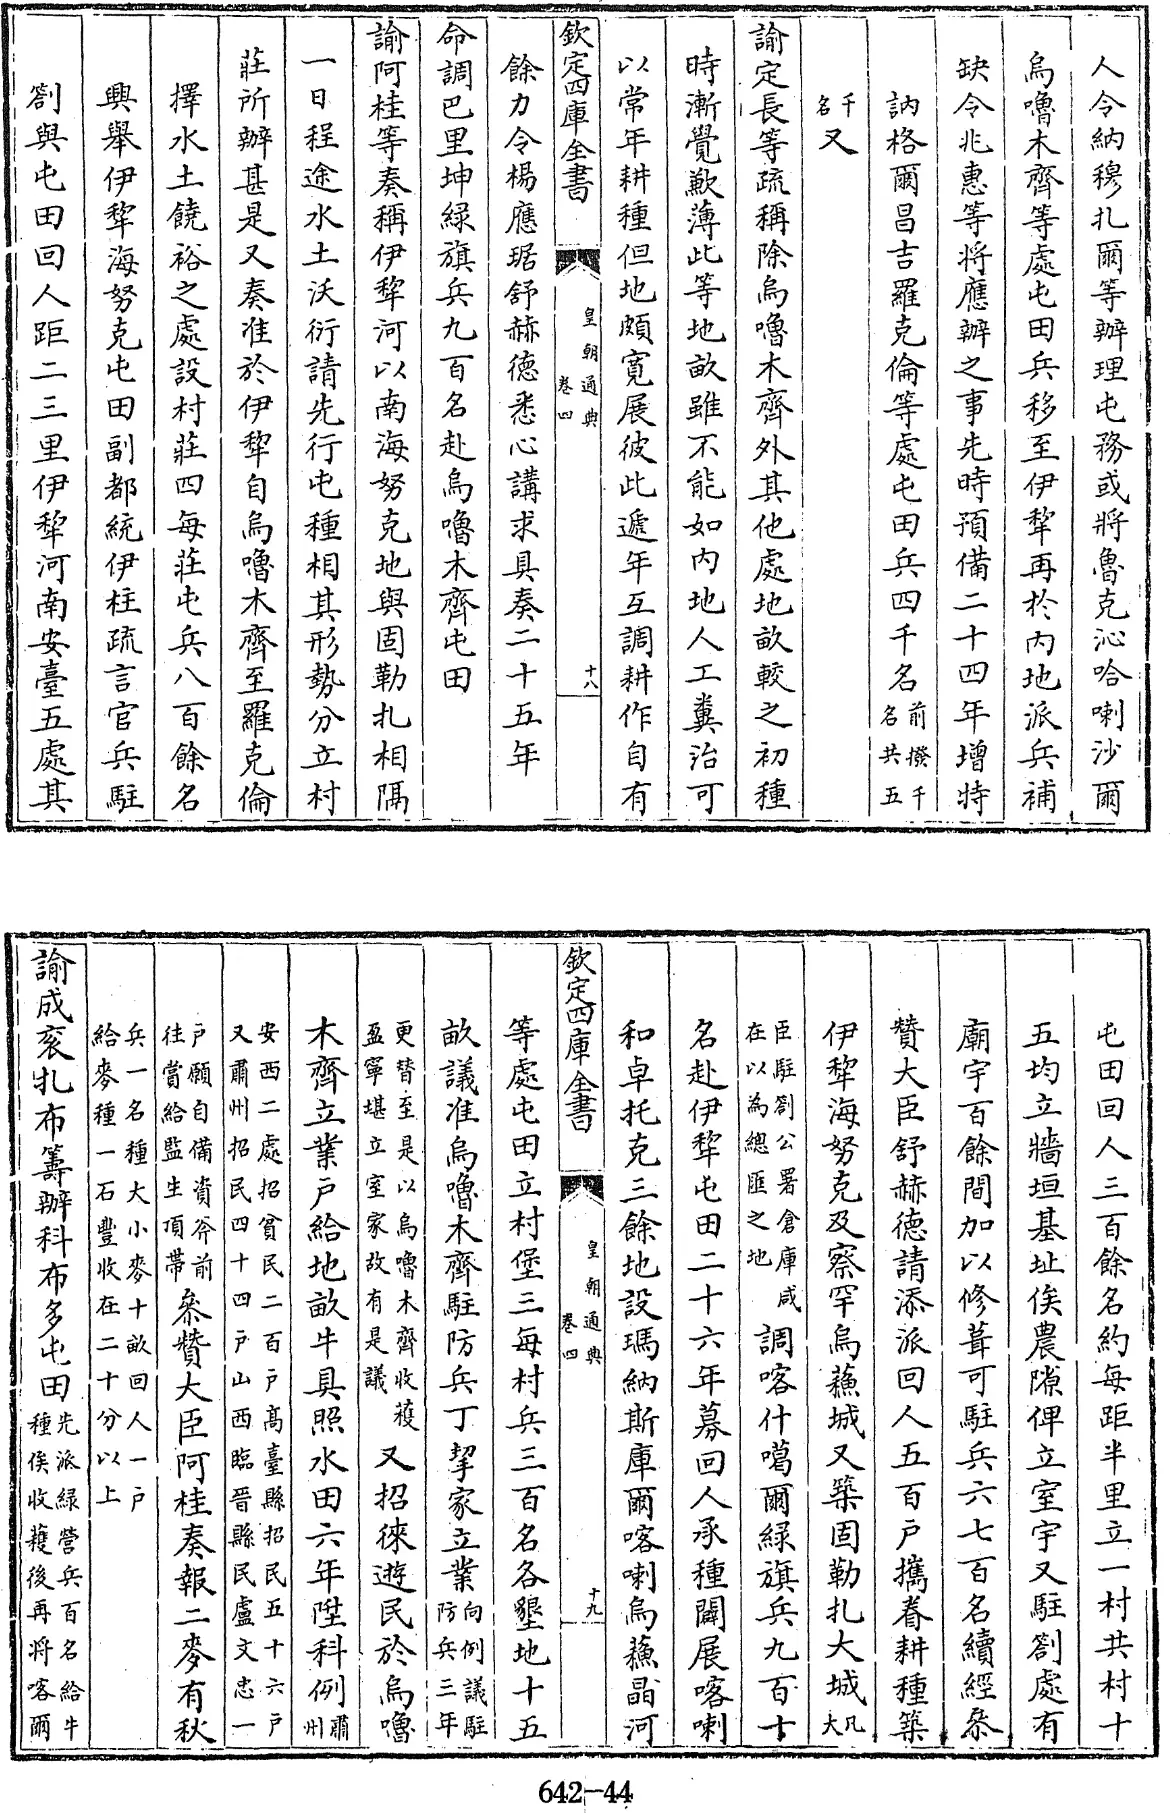 人令納穆扎爾等辦理屯務或將魯克沁哈喇沙爾
烏嚕木齊等處屯田兵移至伊犂再於內地派兵補
缺令兆惠等將應辦之事先時預備二十四年增特
訥格爾昌吉羅克倫等處屯田兵四千名前撥千名共五
千名又
諭定長等疏稱除烏嚕木齊外其他處地畝較之初種
時漸覺歉薄此等地畝雖不能如內地人工糞治可
以常年耕種但地頗寬展彼此遞年互調耕作自有
欽定四庫全書 皇朝通典 卷四 十八
餘力令楊應琚舒赫德悉心講求具奏二十五年
命調巴里坤綠旗兵九百名赴烏嚕木齊屯田
諭阿桂等奏稱伊犂河以南海努克地與固勒扎相隔
一日程途水土沃衍請先行屯種相其形勢分立村
莊所辦甚是又奏准於伊犂自烏嚕木齊至羅克倫
擇水土饒裕之處設村莊四每莊屯兵八百餘名
興舉伊犂海努克屯田副都統伊柱疏言官兵駐
劄與屯田回人距二三里伊犂河南安臺五處其
屯田回人三百餘名約每距半里立一村共村十
五均立牆垣基址俟農隙俾立室宇又駐劄處有
廟宇百餘間加以修葺可駐兵六七百名續經叅
贊大臣舒赫德請添派回人五百戶攜眷耕種築
伊犂海努克及察罕烏蘓城又築固勒扎大城凡大
臣駐劄公署倉庫咸在以為總匯之地調喀什噶爾綠旗兵九百十
名赴伊犂屯田二十六年募回人承種闢展喀喇
和卓托克三餘地設瑪納斯庫爾喀喇烏蘓晶河
欽定四庫全書 皇朝通典 卷四 十九
等處屯田立村堡三每村兵三百名各墾地十五
畝議准烏嚕木齊駐防兵丁挈家立業向例議駐防兵三年
更替至是以烏嚕木齊收穫盈寧堪立室家故有是議又招徠遊民於烏嚕
木齊立業戶給地畝牛具照水田六年陞科例肅州
安西二處招貧民二百戶高臺縣招民五十六戶又肅州招民四十四戶山西臨晉縣民盧文忠一
戶願自備資斧前往賞給監生頂帶叅贊大臣阿桂奏報二麥有秋
兵一名種大小麥十畝回人一戶給麥種一石豐收在二十分以上
諭成衮扎布籌辦科布多屯田先派綠營兵百名給牛種俟收穫後再將喀爾
642-44